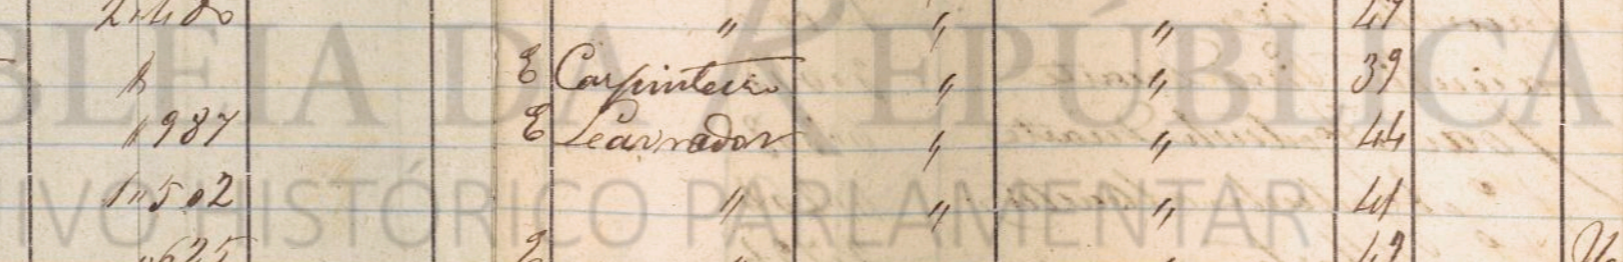 " " " 47
E Carpinteiro " " 39
" 987 E Learrador " " 44
1"502 " " " 41
"625 E " 49
BLEIA DA REPÚBLICA
IVO HISTÓRICO PARLAMENTAR